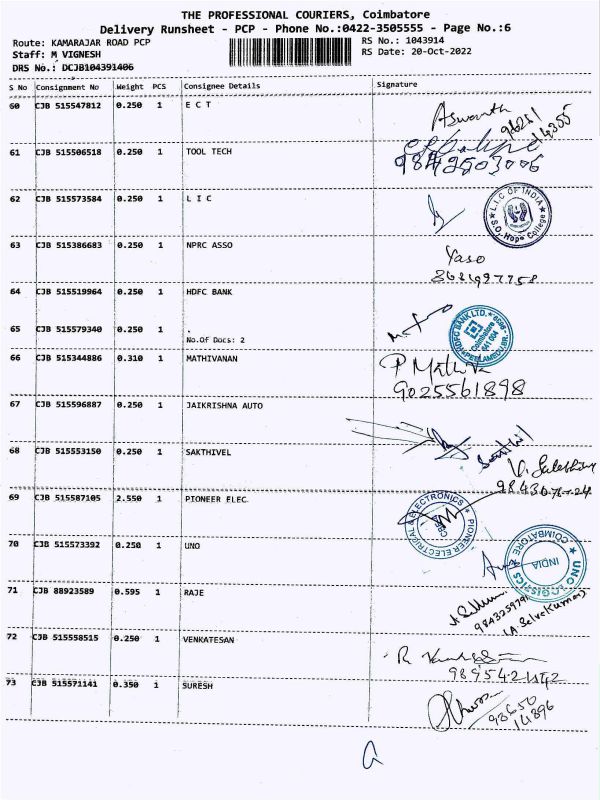 THE PROFESSIONAL COURIERS, Coimbatore
Delivery Runsheet - PCP - Phone No.:0422-3505555 - Page No.:6
Route: KAMARAJAR ROAD PCP
RS No.: 1043914
Staff: M VIGNESH
RS Date: 20-Oct-2022
DRS No.: DCJB104391406
S No Consignment No Weight PCS Consignee Details Signature
60 CJB 515547812 0.250 1 E C T Aswanth
61 CJB 515506518 0.250 1 TOOL TECH
9842503006
62 CJB 515573584 0.250 1 L I C
L.I.C OF INDIA
S.O, Hope College
63 CJB 515386683 0.250 1 NPRC ASSO Yaso
64 CJB 515519964 0.250 1 HDFC BANK
HDFC BANK LTD.
Coimbatore
641 004
65 CJB 515579340 0.250 1
No.Of Docs: 2
66 CJB 515344886 0.310 1 MATHIVANAN
9025561898
67 CJB 515596887 0.250 1 JAIKRISHNA AUTO
68 CJB 515553150 0.250 1 SAKTHIVEL
69 CJB 515587105 2.550 1 PIONEER ELEC
PIONEER ELECTRICAL & ELECTRONICS
CBE
70 CJB 515573392 0.250 1 UNO
UNO LOGISTICS
COIMBATORE
INDIA
71 CJB 88923589 0.595 1 RAJE
9843259791
(A Selvakumar)
72 CJB 515558515 0.250 1 VENKATESAN
73 CJB 515571141 0.350 1 SURESH
93650
14896